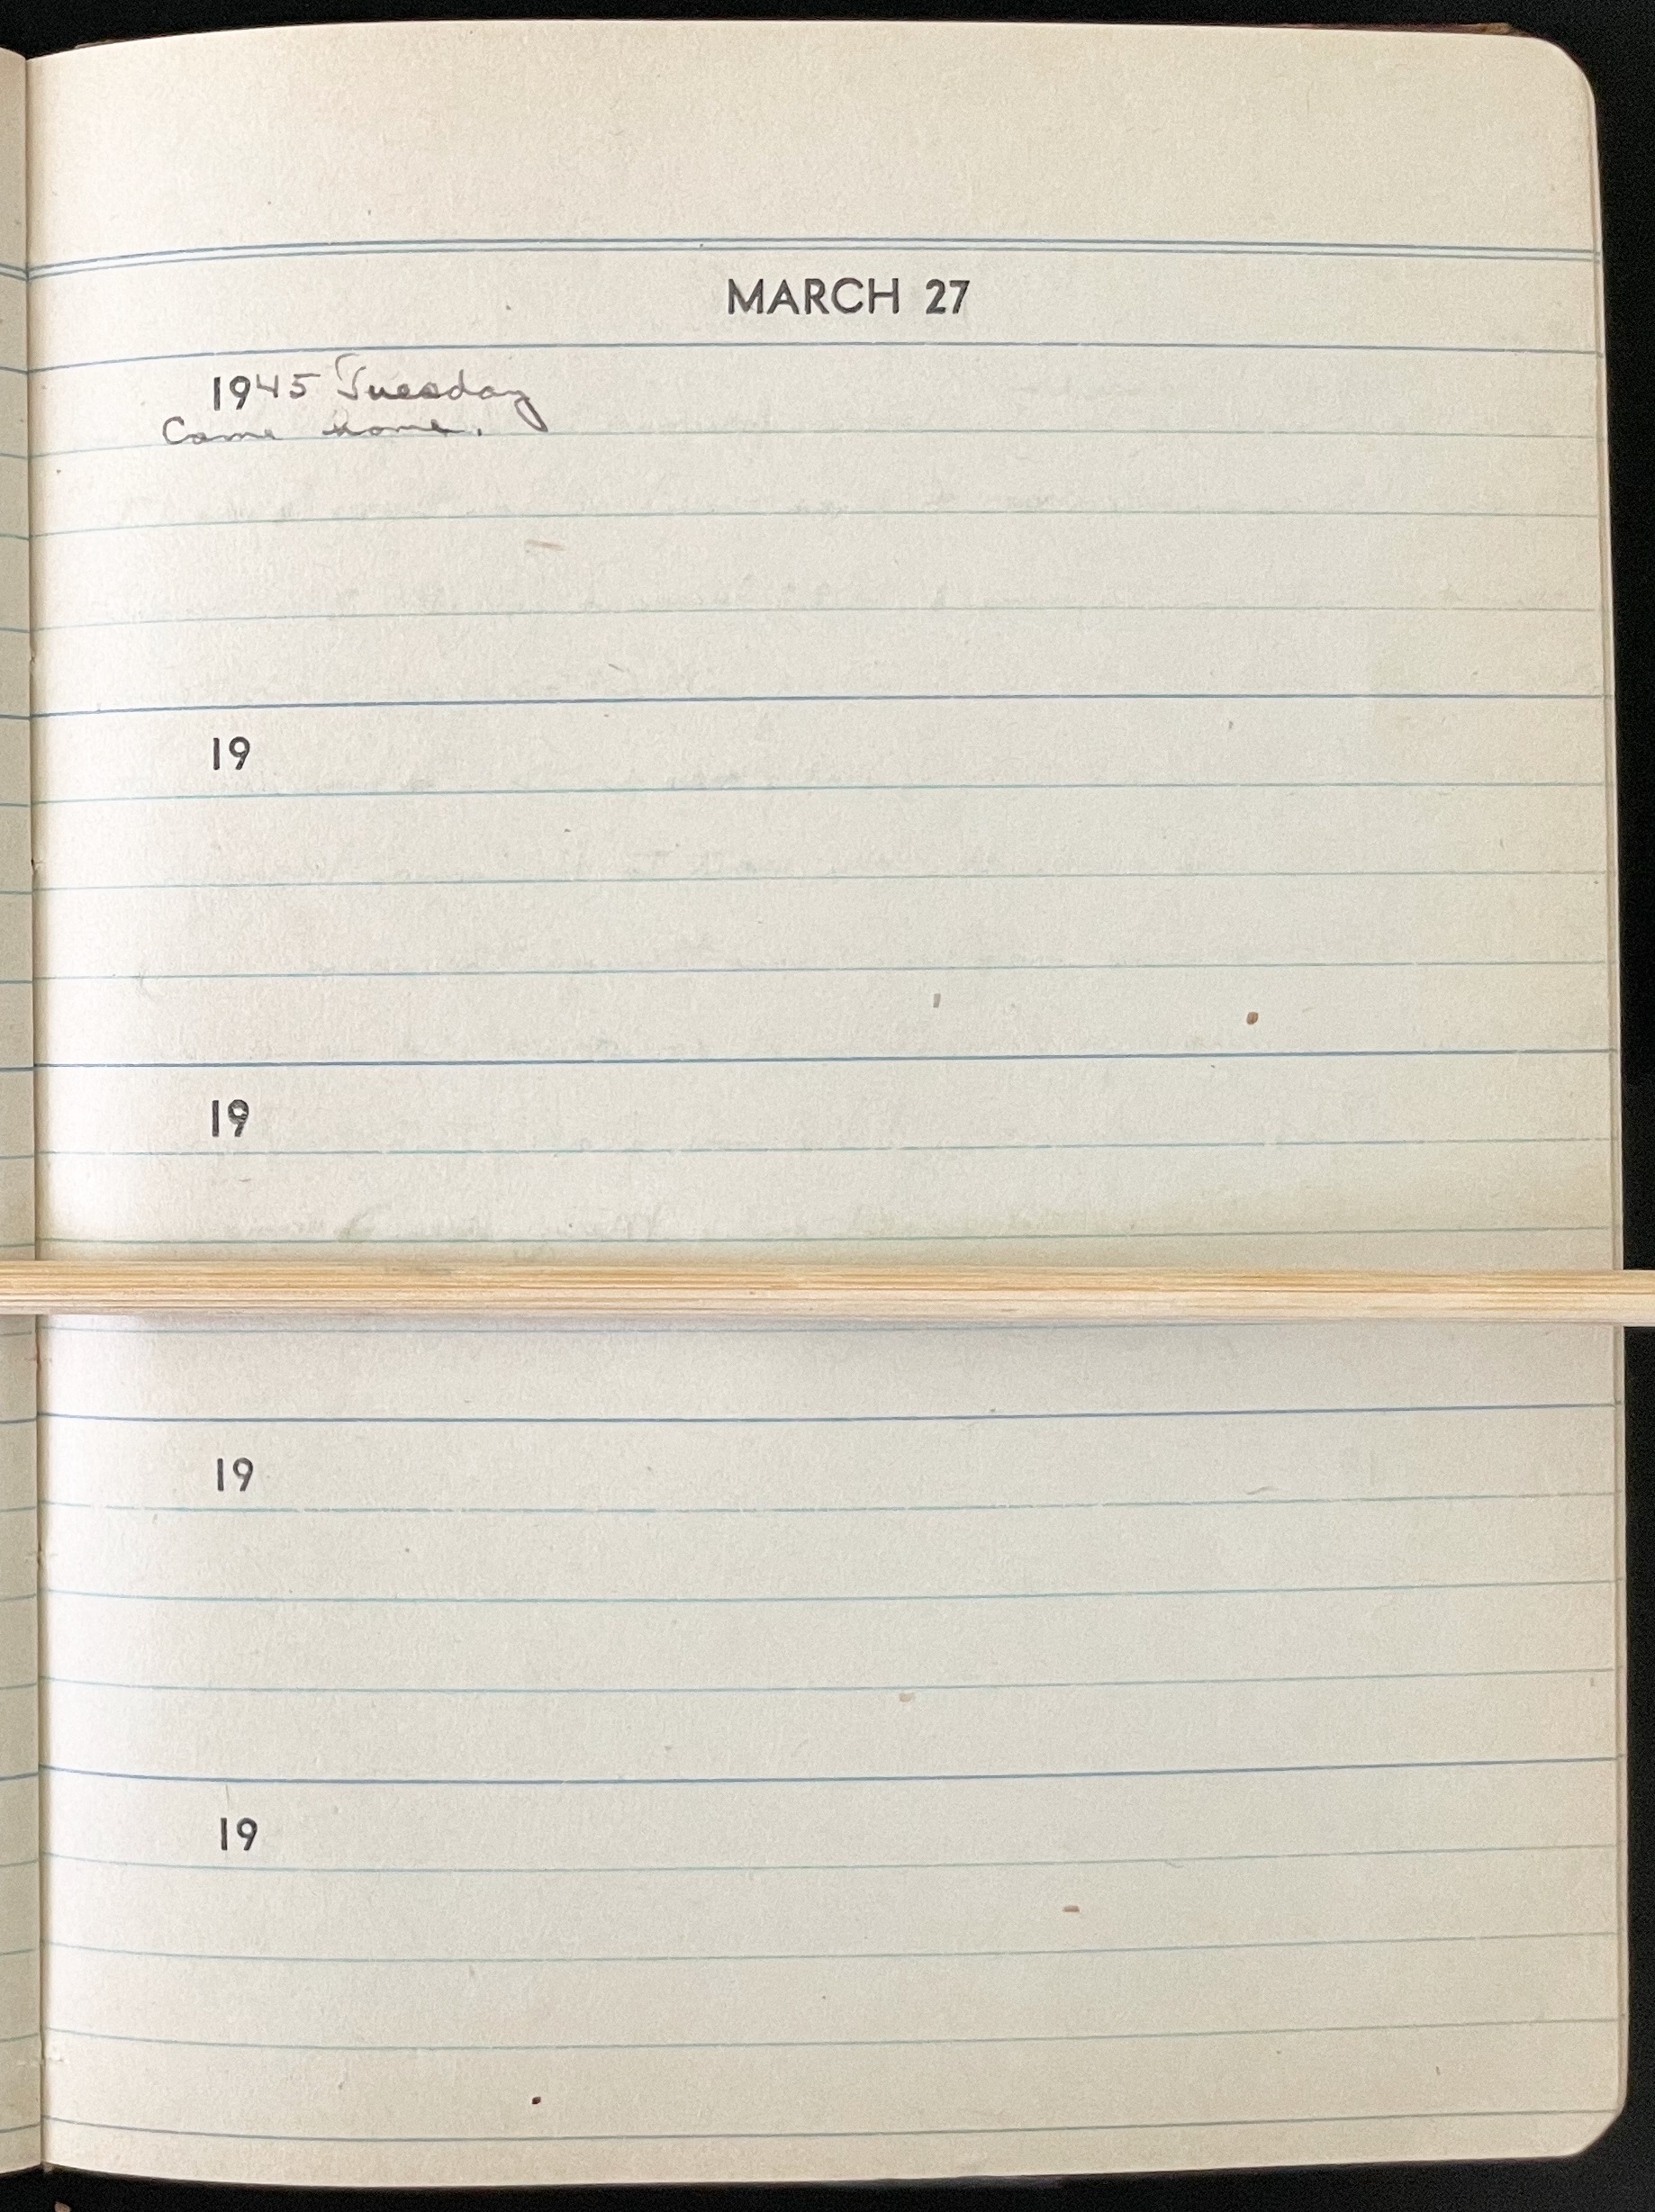 MARCH 27
1945 Tuesday
Came home.
19
19
19
19